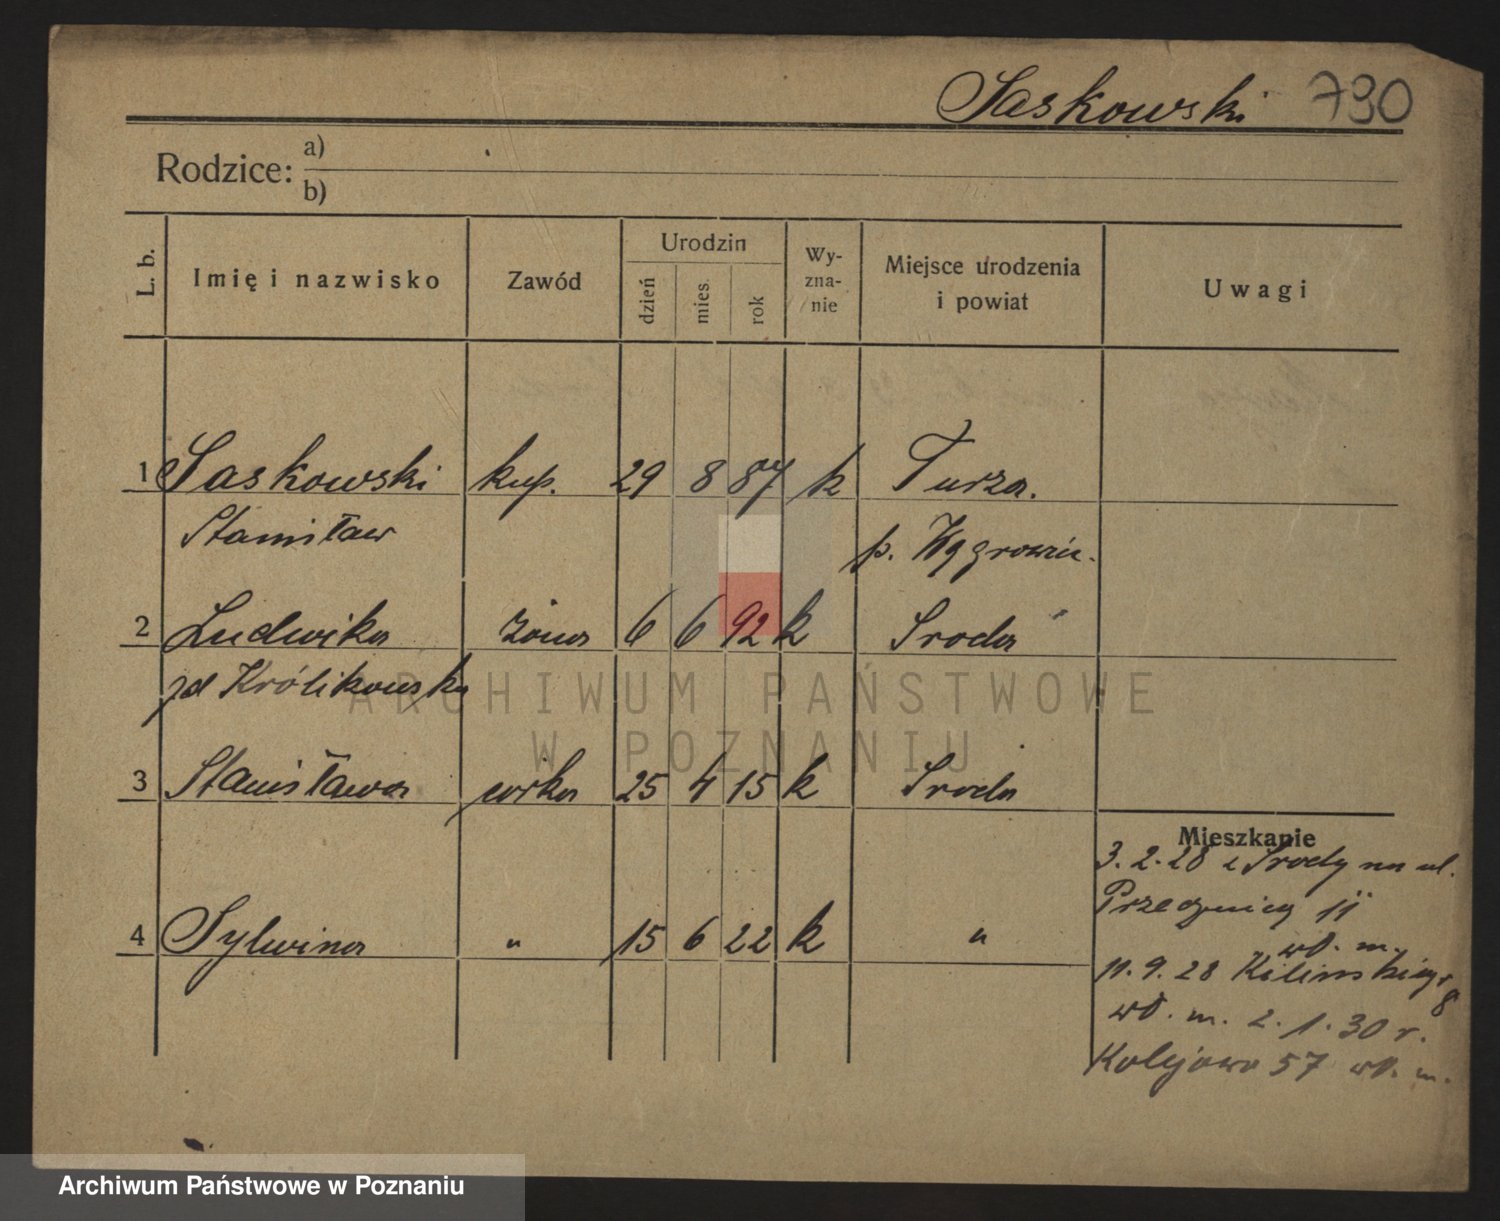 Saskowski 790
Rodzice: a)
b)
L. b.
Imię i nazwisko
Zawód
Urodzin
dzień
mies.
rok
Wy-
zna-
nie
Miejsce urodzenia
i powiat
Uwagi
1 Saskowski kup. 29 8 87 k Turza.
Stanisław p. Wągrowiec.
2 Ludwika żona 6 6 92 k Sroda
zd Królikowska
3 Stanisława córka 25 4 15 k Sroda
4 Sylwina " 15 6 22 k "
Mieszkanie
3.2.28 z Srody na ul.
11
wł. m.
11.9.28 Kilińskiego
8
wł. m. 2.1.30 r.
Kolejowa 57 wł. m.
ARCHIWUM PAŃSTWOWE
W POZNANIU
Archiwum Państwowe w Poznaniu